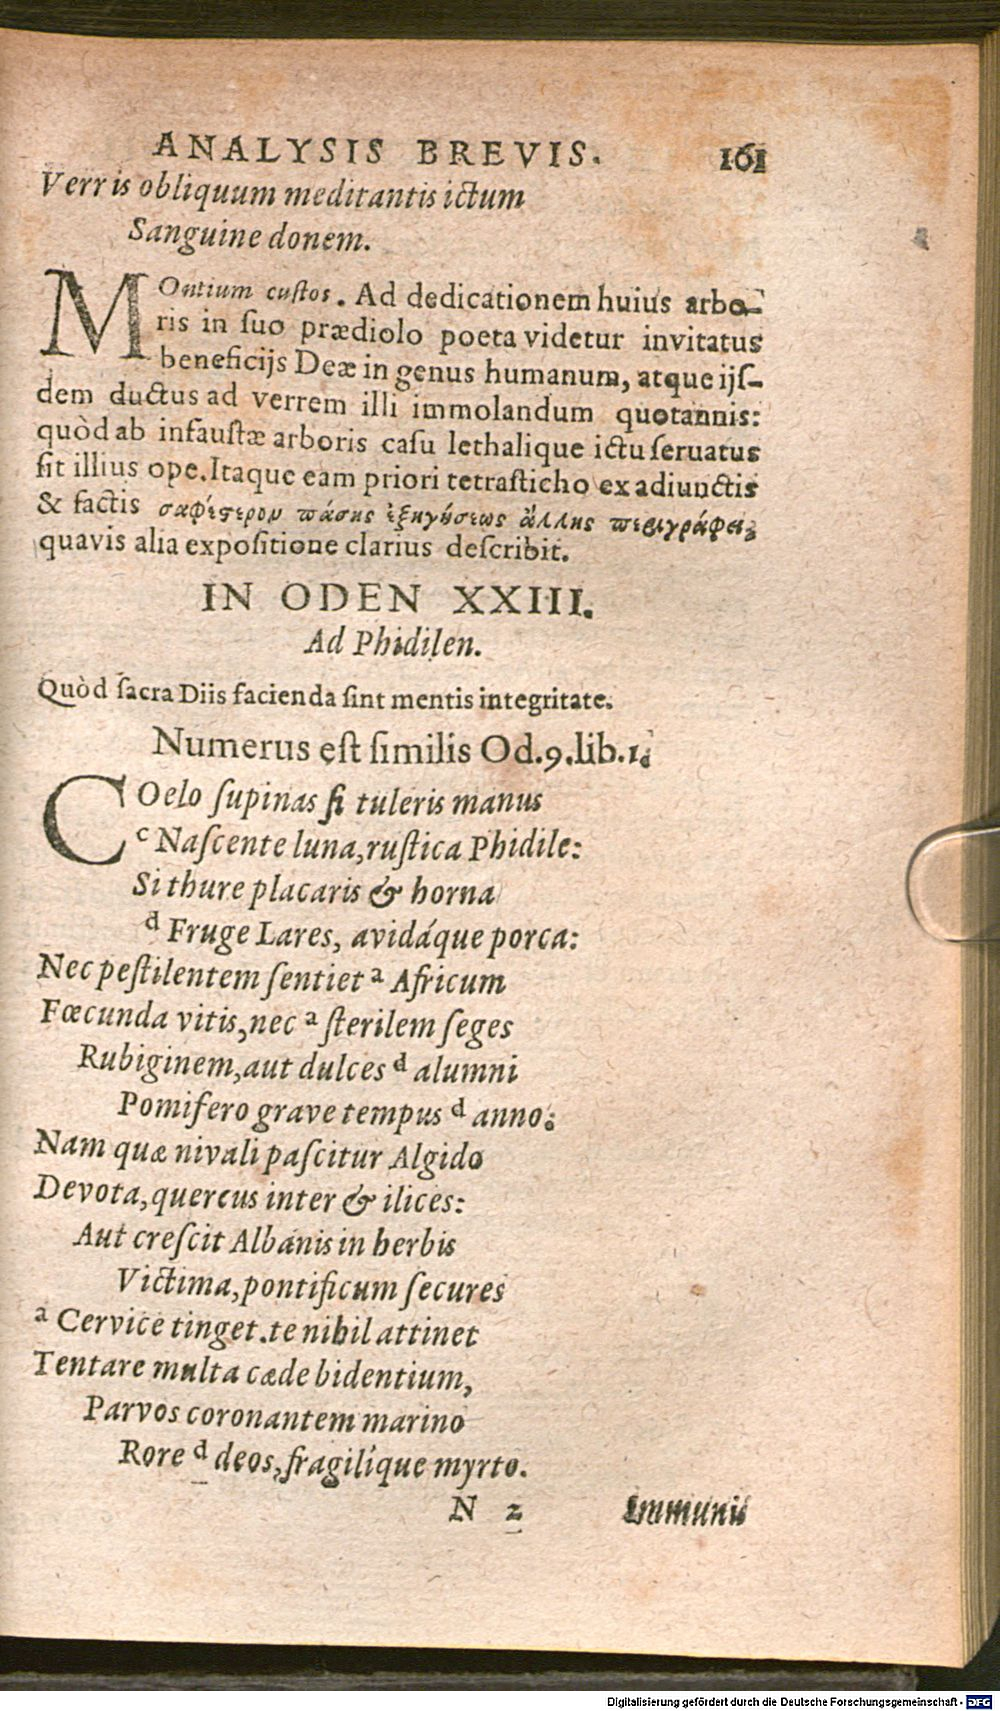 ANALYSIS BREVIS. 161
Verris obliquum meditantis ictum
Sanguine donem.
MOntium custos. Ad dedicationem huius arbo-
ris in suo prædiolo poeta videtur invitatus
beneficijs Deæ in genus humanum, atque ijs-
dem ductus ad verrem illi immolandum quotannis:
quòd ab infaustæ arboris casu lethalique ictu seruatus
sit illius ope. Itaque eam priori tetrasticho ex adiunctis
& factis σαφέστερον πάσης ἐξηγήσεως ἄλλης περιγράφει,
quavis alia expositione clarius describit.
IN ODEN XXIII.
Ad Phidilen.
Quòd sacra Diis facienda sint mentis integritate.
Numerus est similis Od.9.lib.1.
COelo supinas si tuleris manus
c Nascente luna, rustica Phidile:
Si thure placaris & horna
d Fruge Lares, avidáque porca:
Nec pestilentem sentiet a Africum
Fœcunda vitis, nec a sterilem seges
Rubiginem, aut dulces d alumni
Pomifero grave tempus d anno.
Nam quæ nivali pascitur Algido
Devota, quercus inter & ilices:
Aut crescit Albanis in herbis
Victima, pontificum secures
a Cervice tinget. te nihil attinet
Tentare multa cæde bidentium,
Parvos coronantem marino
Rore d deos, fragilíque myrto.
N 2 Immunis
Digitalisierung gefördert durch die Deutsche Forschungsgemeinschaft - DFG